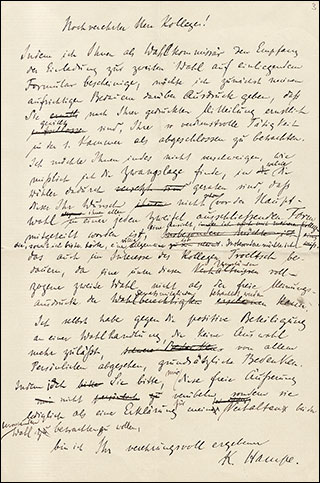 3
Hochverehrter Herr Kollege!
Indem ich Ihnen als Wahlkommissär den Empfang
der Einladung zur zweiten Wahl auf einliegendem
Formular bescheinige, möchte ich zunächst meinem
aufrichtigen Bedauern darüber Ausdruck geben, daß
Sie nach Ihrer gedruckten Mitteilung
sind, Ihre so verdienstvolle Tätigkeit
in der 1. Kammer als abgeschlossen zu betrachten.
Ich möchte Ihnen indes nicht verschweigen, wie
mißlich ich die Zwangslage finde, in welche die
Wähler dadurch versetzt geraten sind, daß
dieser Ihr Wunsch nicht vor der Haupt-
wahl in einer jeden Zweifel ausschließenden Form
mitgeteilt worden ist,
das auch im Interesse des Kollegen Troeltsch be-
dauern, da eine unter diesen voll-
zogene zweite Wahl nicht als der freie Meinungs-
ausdruck der Wahlberechtigten kann.
Ich selbst habe gegen die positive Beteiligung
an einer Wahlhandlung, die keine Auswahl
mehr zuläßt, von allem
Persönlichen abgesehen, grundsätzliche Bedenken.
Indem ich Sie bitte, mir diese freie Äußerung
nicht zu verübeln, sondern sie
lediglich als eine Erklärung meines Verhaltens bei der
Wahl betrachten zu wollen,
bin ich Ihr verehrungsvoll ergebener
K. Hampe.